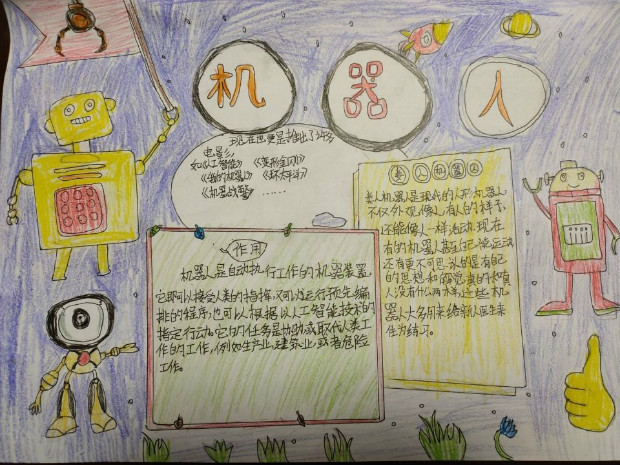 机器人
现在也更是推出了许多
电影
如《人工智能》《变形金刚》
《我的机器人》《环太平洋》
《机器战警》……
作用
机器人是自动执行工作的机器装置
它即可以接受人类的指挥,又可以运行预先编
排的程序,也可以根据以人工智能技术的
指定行动,它的任务是协助或取代人类工
作的工作,例如生产业,建筑业,或者危险
工作。
类人机器人
类人机器人是现代的人形机器人
不仅外观像人有人的样子,
还能像人一样活动,现在
有的机器人
还有更不可思议的是有自己
的思想和,真的和真
人没有什么两样,这些机
器人大多用来给新人医生来
作为练习。